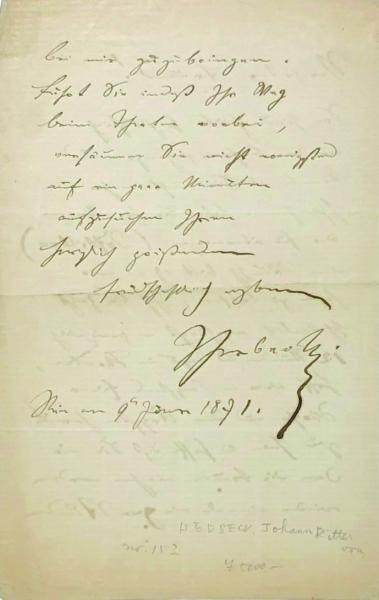 bei mir zuzubringen.
Führt Sie indeß Ihr Weg
beim Theater vorbei,
versäumen Sie nicht wenigstens
auf ein paar Minuten
aufzusuchen Ihren
herzlich grüßenden
freundschaftlich
Herbeck
Wien am 9t Januar 1871.
HERBECK, Johann Ritter
von
no. 152